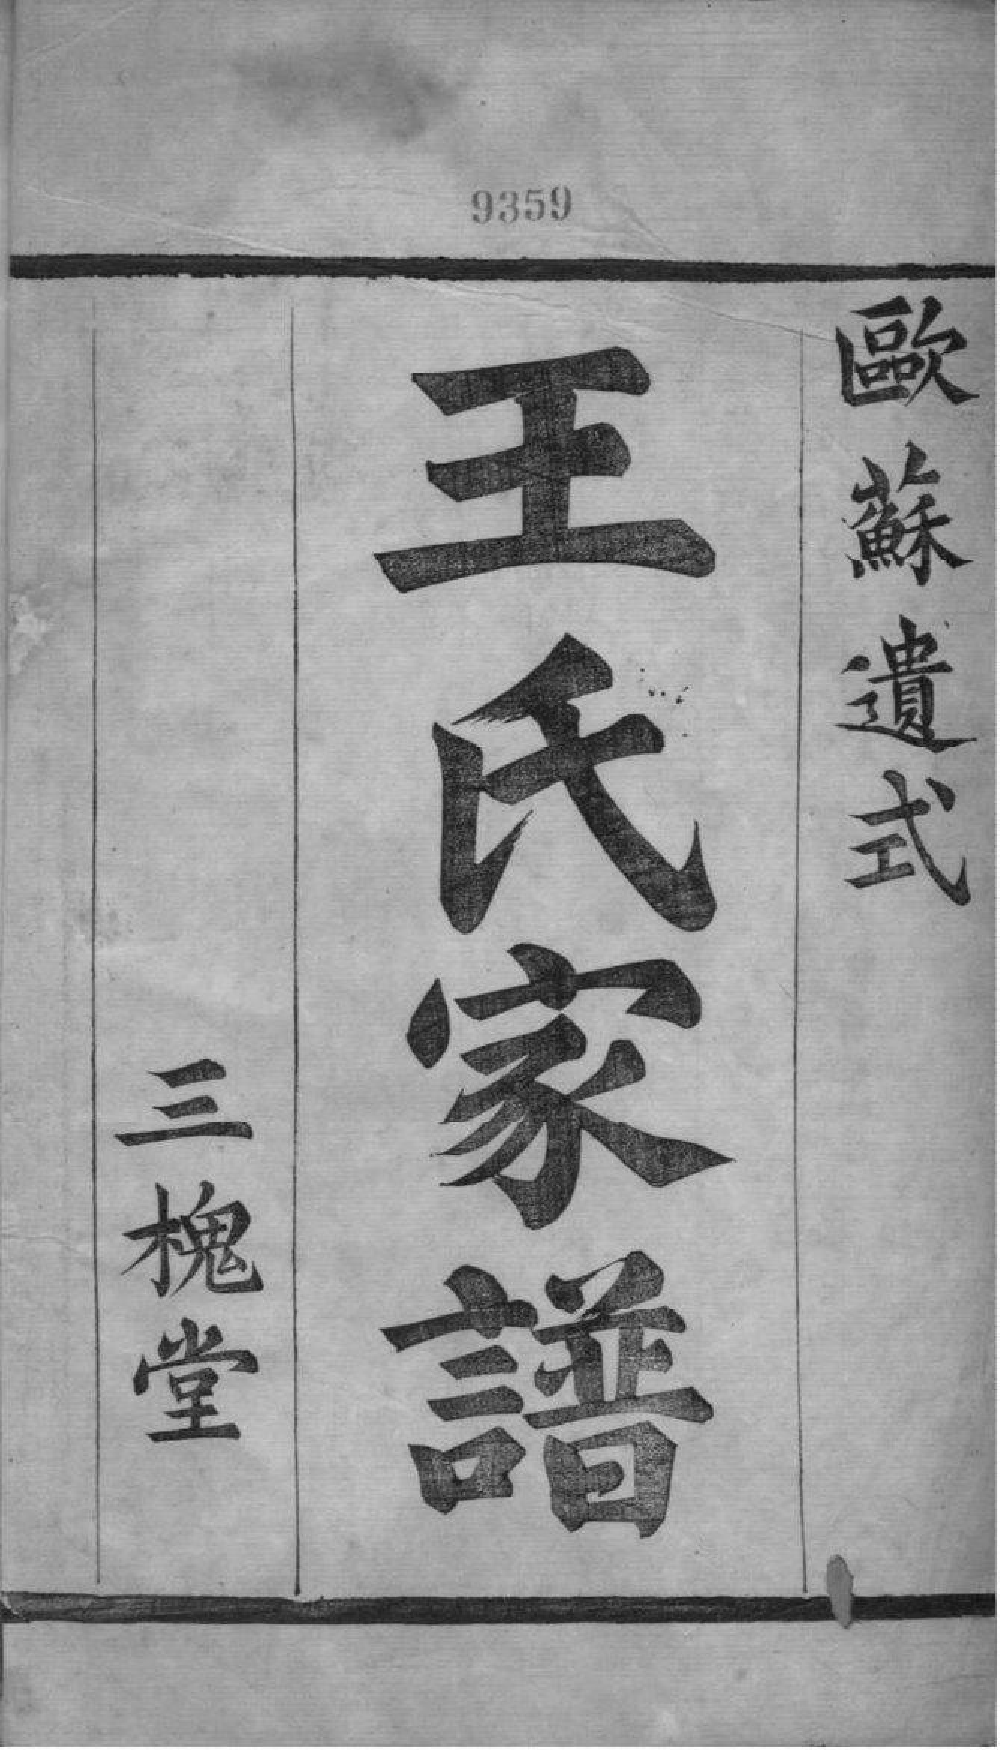 9359
歐蘇遺式
王氏家譜
三槐堂